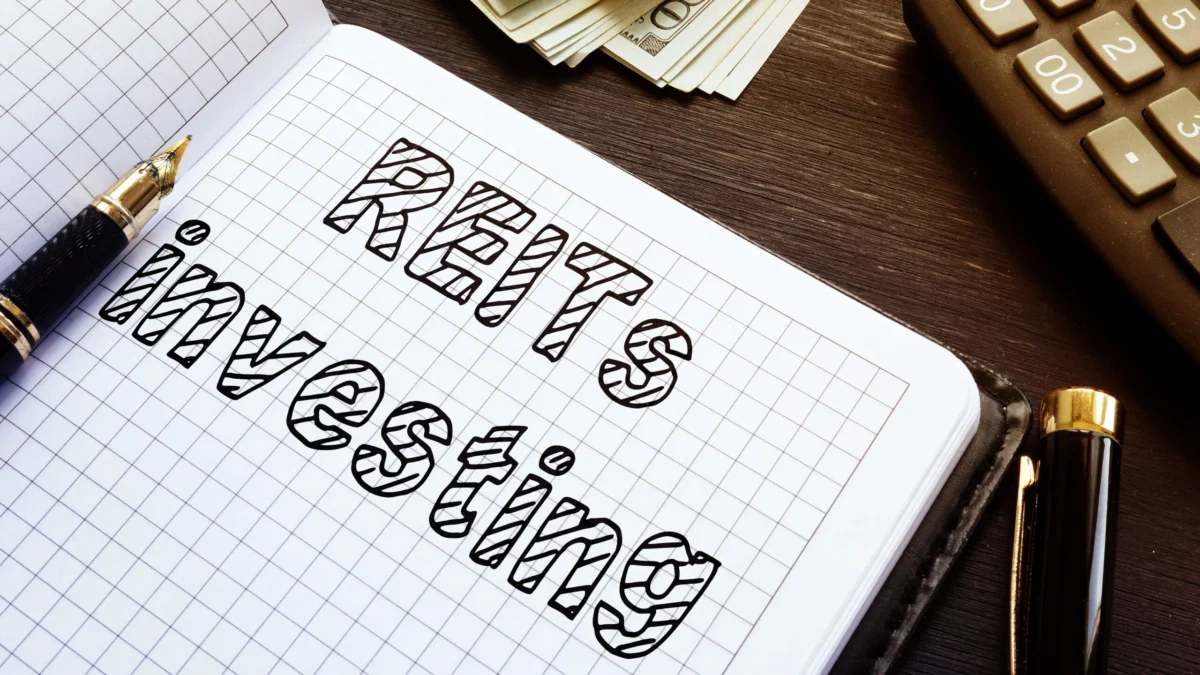 REITs
investing
00
2
5
00
3
.
0